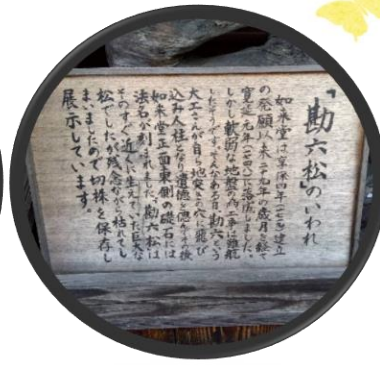 「勘六松」のいわれ
如来堂は享保四年(一七一九)建立
の発願人来三十九年の歳月を経て
寛延元年(一七四八)に落成しました。
しかし軟弱な地盤の為工事は難航
したそうです。そんなある日勘六という
大工さんが自ら地突きの穴に飛び
込み人柱となり遺徳を偲びその後
如来堂正面東側の礎石には
法名が刻まれました。勘六松は
そのすぐ近くに生えていた巨大な
松でしたが残念ながら枯れてし
まいましたので切株を保存し
展示しています。